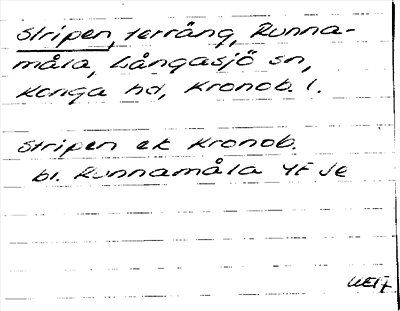 Stripen, terräng, Runna-
måla, Långasjö sn,
Konga hd, Kronob. l.
Stripen ek Kronob.
bl. Runnamåla 4F Je